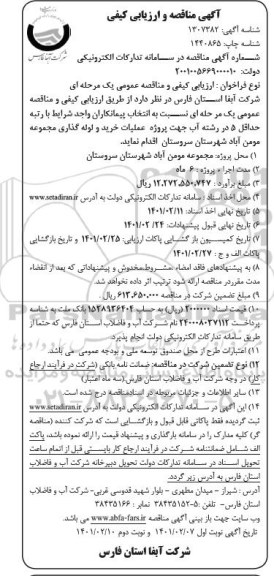 آگهی مناقصه و ارزیابی کیفی
شناسه آگهی: ۱۳۰۷۳۸۲
شناسه چاپ: ۱۴۴۰۸۶۵
شماره آگهی مناقصه در سامانه تدارکات الکترونیکی
دولت: ۲۰۰۱۰۰۵۶۶۹۰۰۰۰۱۰
نوع فراخوان : ارزیابی کیفی و مناقصه عمومی یک مرحله ای
شرکت آبفا استان فارس در نظر دارد از طریق ارزیابی کیفی و مناقصه
عمومی یک مر حله ای نسبت به انتخاب پیمانکاران واجد شرایط با رتبه
حداقل ۵ در رشته آب جهت پروژه عملیات خرید و لوله گذاری مجموعه
مومن آباد شهرستان سروستان اقدام نماید.
۱) محل پروژه: مجموعه مومن آباد شهرستان سروستان
۲) مدت اجراء پروژه : ۶ ماه
۳) مبلغ برآورد : ۱۲,۲۷۲,۵۵۰,۷۴۷ ریال
۴) محل اخذ اسناد : سامانه تدارکات الکترونیکی دولت به آدرس www.setadiran.ir
۵) تاریخ نهایی اخذ اسناد: ۱۴۰۱/۰۲/۱۱
۶) تاریخ نهایی قبول پیشنهادات: ۱۴۰۱/۰۲/۲۴
۷) تاریخ کمیسیون باز گشایی پاکات ارزیابی: ۱۴۰۱/۰۲/۲۵ و تاریخ بازگشایی
پاکات الف و ج : ۱۴۰۱/۰۲/۲۷
۸) به پیشنهادهای فاقد امضاء ,مشروط,مخدوش و پیشنهاداتی که بعد از انقضاء
مدت مقرردر مناقصه ارائه شود ترتیب اثر داده نخواهد شد.
۹) مبلغ تضمین شرکت در مناقصه ۶۱۳,۶۵۰,۰۰۰ ریال
۱۰) قیمت اسناد ۲۰۰۰۰۰۰ (ریال) به حساب ۱۵۳۸۹۳۶۴۰۴ بانک ملت به شناسه
پرداخت ۲۴۰۰۰۸۰۲۷۱۱۲ نام شرکت آب و فاضلاب استان فارس که حتما از
طریق سامانه تدارکات الکترونیکی دولت انجام پذیرد.
۱۱) اعتبارات طرح از محل صندوق توسعه ملی و بودجه عمومی می باشد.
۱۲) نوع تضمین شرکت در مناقصه: ضمانت نامه بانکی (شرکت در فرآیند ارجاع
کار) در وجه شرکت آب و فاضلاب استان فارس(سه ماه اعتبار)
۱۳) سایر اطلاعات و جزئیات مربوطه در اسنادمناقصه درج شده است.
۱۴) این آگهی در سامانه تدارکات الکترونیکی دولت به آدرس www.setadiran.ir
ثبت گردیده فقط پاکاتی قابل قبول و بازگشایی است که شرکت کننده (مناقصه
گر) کلیه مدارک را در سامانه بارگذاری و پیشنهاد قیمت را ارائه نموده باشد. پاکت
الف شامل ضمانتنامه شرکت در فرآیند ارجاع کار بایستی قبل از اتمام ساعت
تحویل اسناد در سامانه تدارکات دولت تحویل دبیرخانه شرکت آب و فاضلاب
استان فارس به آدرس زیر گردد.
آدرس : شیراز – میدان مطهری – بلوار شهید قدوسی غربی- شرکت آب و فاضلاب
استان فارس- تلفن :۵-۳۸۴۳۵۱۵۲ نمابر : ۳۸۴۳۵۱۶۶
وب سایت جهت باز بینی آگهی مناقصه www.abfa-fars.ir می باشد.
تاریخ آگهی نوبت اول ۱۴۰۱/۰۲/۰۷ و نوبت دوم ۱۴۰۱/۰۲/۱۰
شرکت آبفا استان فارس